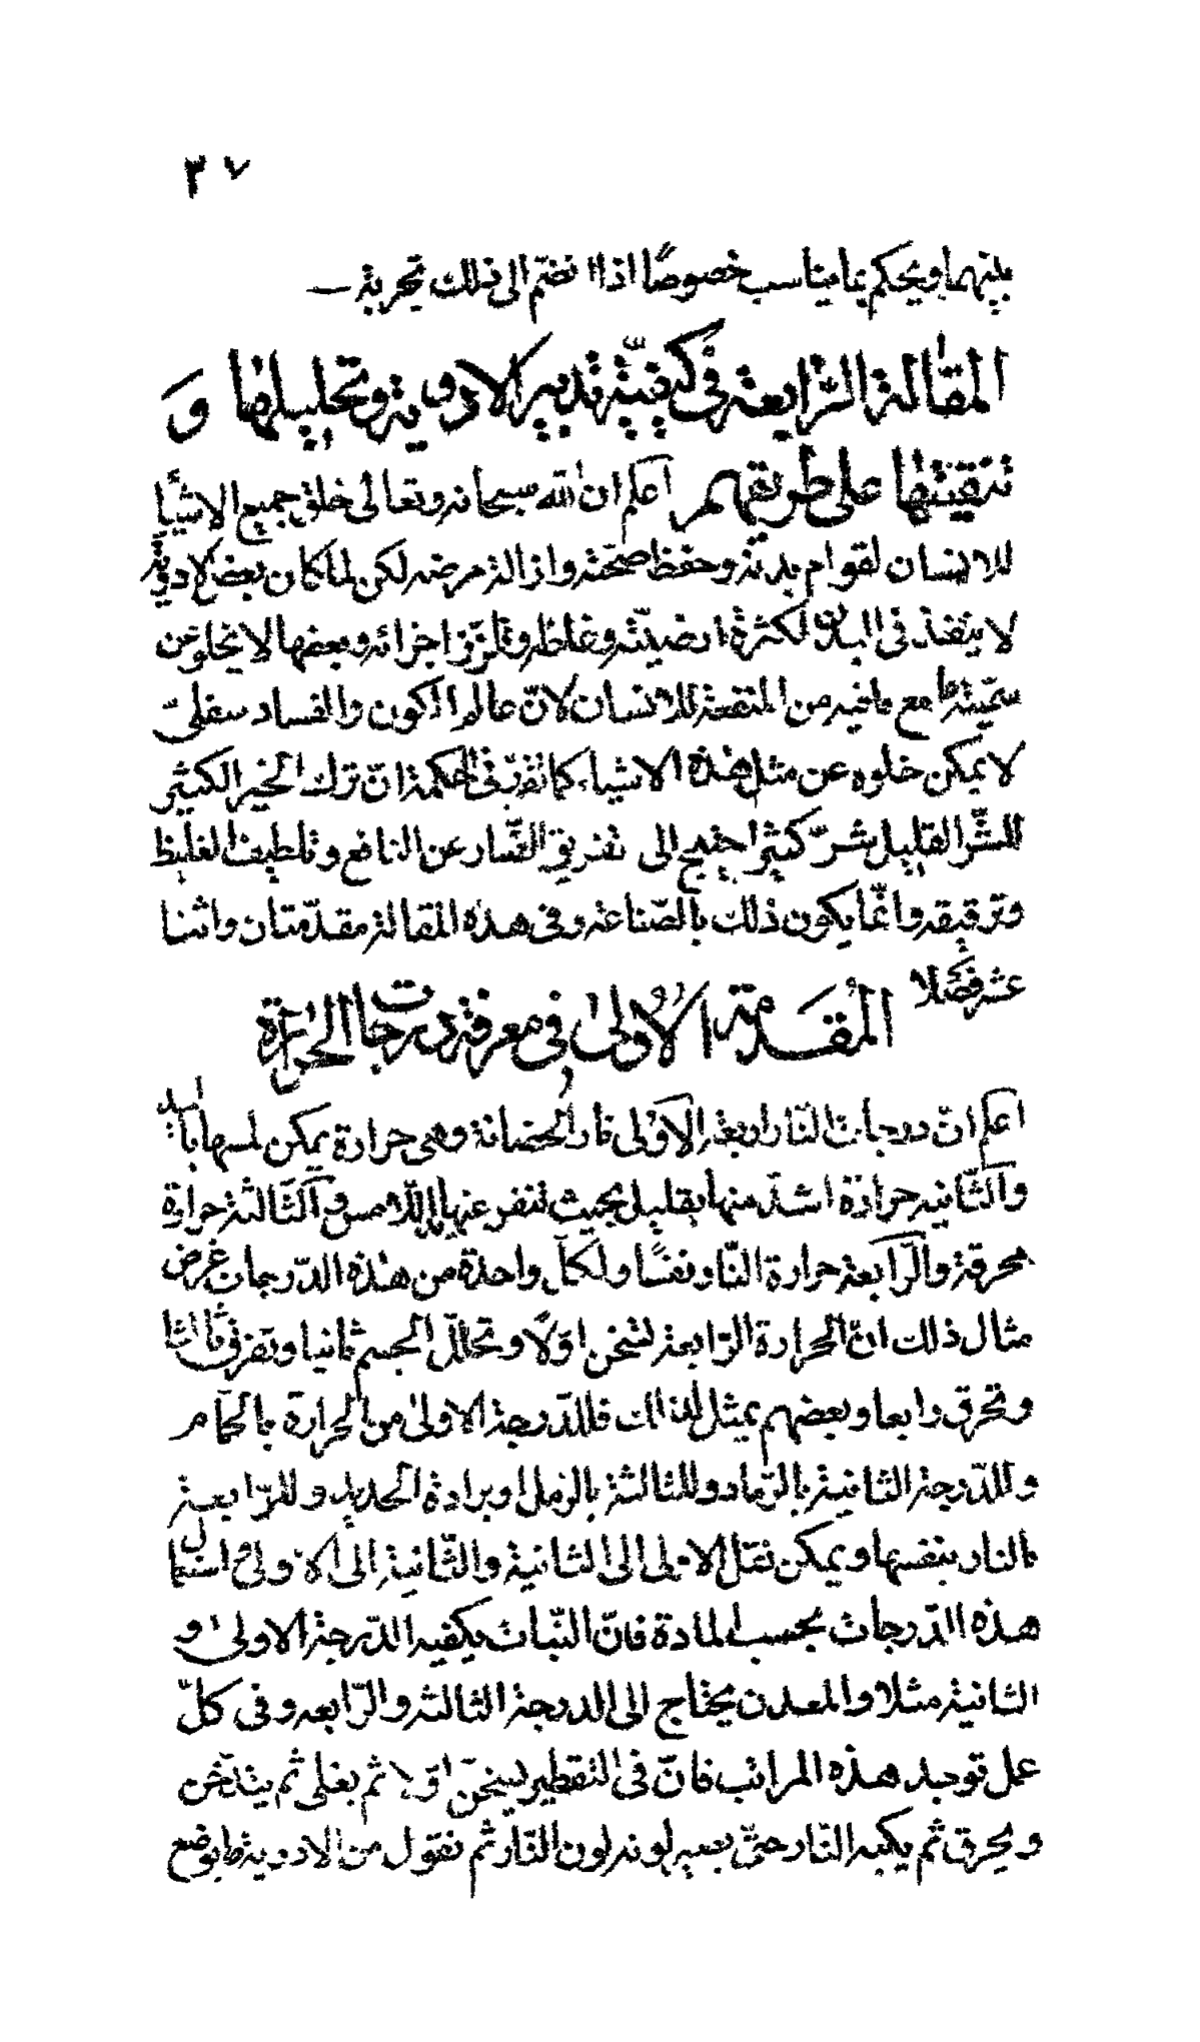 ٣٧
بينهما ويحكم بما يناسب خصوصًا اذا انضمّ الى ذلك تجربة
المقالة الرّابعة فى كيفيّة تدبير الادوية وتحليلها و
تنقيتها على طريقهم اعلم ان الله سبحانه وتعالى خلق جميع الاشيأ
للانسان لقوام بدنه وحفظ صحّته وازالة مرضه لكن لما كان بعض الادوية
لا ينفذ فى البدن لكثرة ارضيّته وغلظه وتلزّز اجزائه وبعضها لا يخلو عن
سمّيّة ما مع ما فيه من المنفعة للانسان لانّ عالم الكون والفساد سفلىّ
لا يمكن خلوه عن مثل هذه الاشياء كما تقرّر فى الحكمة انّ ترك الخير الكثير
للشّر القليل شرّ كثير احتيج الى تفريق الضّار عن النافع وتلطيف الغليظ
وترقيقه وانّما يكون ذلك بالصّناعة وفى هذه المقالة مقدّمتان واثنا
عشر فصلا المُقدّمة الاُولىٰ فى معرفة درجات الحرارة
اعلم انّ درجات النّار اربعة الاَوُلى نار الحضانة وهى حرارة يمكن لمسها باليد
والثّانية حرارة اشدّ منها بقليل بحيث تنفر عنها اللّامس والثّالثة حرارة
محرقة والرّابعة حرارة النّار نفسًا ولكلّ واحدة من هذه الدّرجات غرض
مثال ذلك انّ الحرارة الرّابعة تسخن اوّلًا وتحلّل الجسم ثانيا وتفرق ثالثا
وتحرق رابعا وبعضهم يمثل لذلك فللدّرجة الاولىٰ من الحرارة بالحمّام
وللدّرجة الثانية بالرّماد وللثالثة بالرّمل او برادة الحديد وللرّابعة
بالنار بنفسها ويمكن نقل الاولى الى الثانية والثّانية الى الاولىٰ استعمال
هذه الدّرجات بحسب المادة فانّ النّبات يكفيه الدّرجة الاولىٰ و
الثانية مثلا والمعدن يحتاج الى الدرجة الثالثة والرّابعة وفى كلّ
عمل توجد هذه المراتب فانّ فى التقطير يسخّن اوّلا ثم يغلى ثم يتدخّن
ويحرق ثم يكبه النّار حتّى يصير لونه لون النّار ثم نقول من الادوية ما يوضع